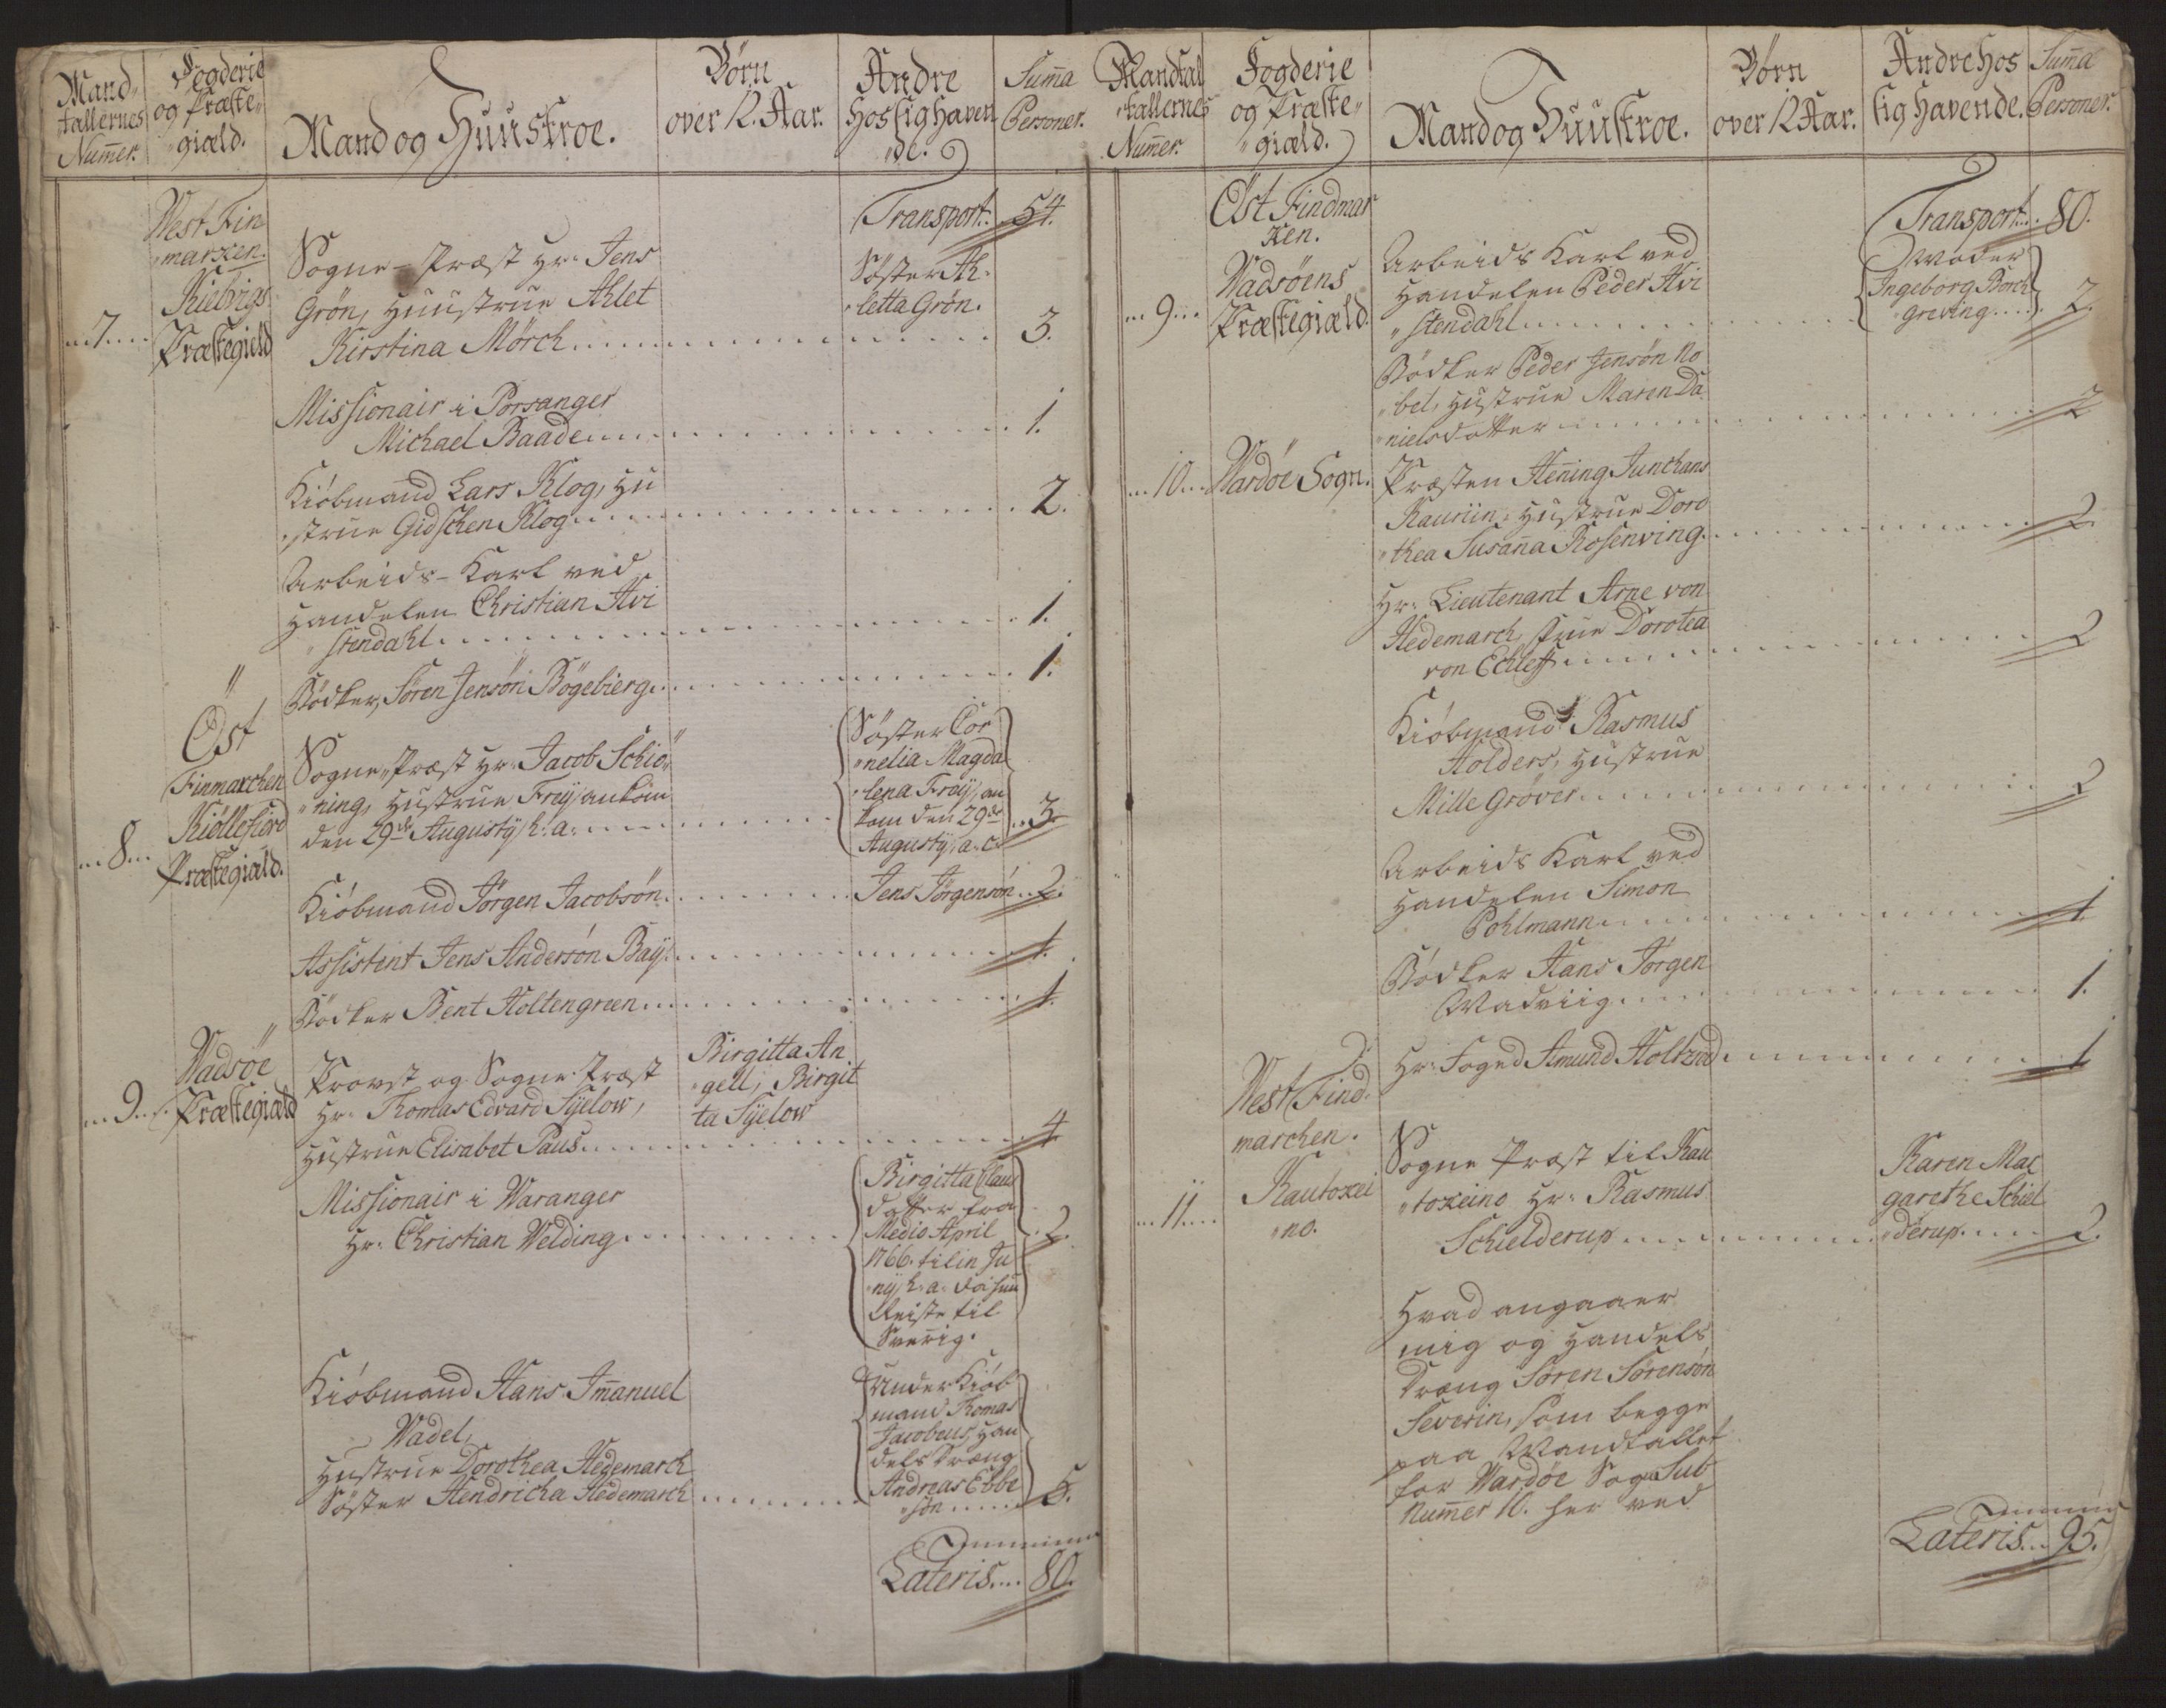 Mand„
„tallernes
Num̄er.
Fogderie
og Præste„
„giæld.
Mand og Huustroe.
Børn
over 12. Aar.
Andre
Hos sig haven
„de.
Sum̄a
Personer.
Transport. 54.
West Fin
„marken.
Kielvigs
...7.... Præstegield
Sogne-Præst Hr: Jens
Grön, Huustrue Ahlet
Kirstina Mörch
Söster Ah„
„letta Grön.
3.
Missionair i Porsanger
Michael Baade 1.
Kiöbmand Lars Klog, Hu
„strue Gidschen Klog 2.
Arbeids-Karl ved
Handelen Christian Hvi
„stendahl 1.
Bödker, Sören Jensön Bögebierg 1.
Öst
Finmarchen
Kiöllefiord
...8... Præstegiæld.
Sogne„Præst Hr: Jacob Schiö„
„ning, Hustrue Frey, ankom
den 29de Augusty h: a:
Söster Cor
„nelia Magda
„lena Frey, an
kom den 29de
Augusty, a. c.
3.
Kiöbmand Jörgen Jacobsön Jens Jörgensön 2.
Assistent Jens Andersön Bay 1.
Bödker Bent Holtengreen 1.
Wadsöe
...9... Præstegiæld
Provst og Sogne-Præst
Hr: Thomas Edvard Syelow,
Hustrue Elisabet Paus
Birgitta An
„gell, Birgit
ta Syelow
4
Missionair i Waranger
Hr: Christian Welding
Birgitta Claus
datter fra
Medio April
1766. til in Ju
„ny h: a: da hun
Reiste til
Sverrig.
2.
Kiöbmand Hans Im̄anuel
Wadel,
Hustrue Dorothea Hedemarch
Söster Hendricha Hedemarch
Under Kiöb
mand Thomas
Jacobeus, Han
dels Dræng
Andreas Ebbe
„sön
5.
Lateris.... 80.
Mandtal
„tallernes
Num̄er.
Fogderie
og Præste„
„giæld.
Mand og Huustroe.
Børn
over 12 Aar.
Andre Hos
sig Havende.
Sum̄a
Personer.
Transport... 80.
Öst Findmar
ken.
Wadsöens
...9... Præstegiæld.
Arbeids Karl ved
Handelen Peder Hvi
„stendahl
Moder
Ingeborg Borch
greving....
2.
Bödker Peder Jensön No
„bel, Hustrue Maren Da
„nielsdotter 2
...10... Wardöe Sogn.
Præsten Hen̄ing Junchans
Kauriin, Hustrue Doro
„thea Susan̄a Rosenving 2.
Hr: Lieutenant Arne von
Hedemarch, Frue Dorotea
von Echleff 2
Kiöbmand Rasmus
Holders, Hustrue
Mille Gröver 2
Arbeids Karl ved
Handelen Simon
Pohlmann 1
Bödker Hans Jörgen
Wadviig 1.
Hr: Foged Amund Holkzad 1
West Find„
marchen.
Kautokei
...11.... „no.
Sogne Præst til Kau
„tokeino Hr: Rasmus
Schielderup
Karen Mar
garethe Schiel
„derup.
2.
Hvad angaaer
mig og Handels
Dræng Sören Sörensön
Severin, som begge
paa Mandtallet
for Wardöe Sogn Sub
Num̄er 10. her ved
Lateris... 95.